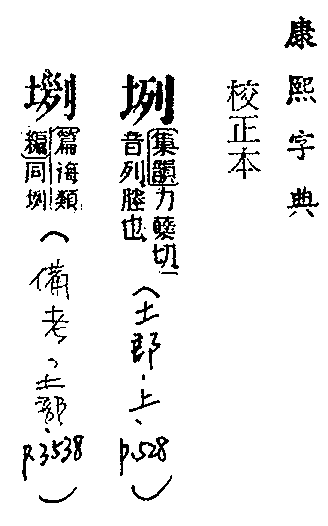 康熙字典
校正本
集韻力櫱切
音列塍也
（土部·上、p.528）
篇海類
編同
（備考、土部、p.3538）